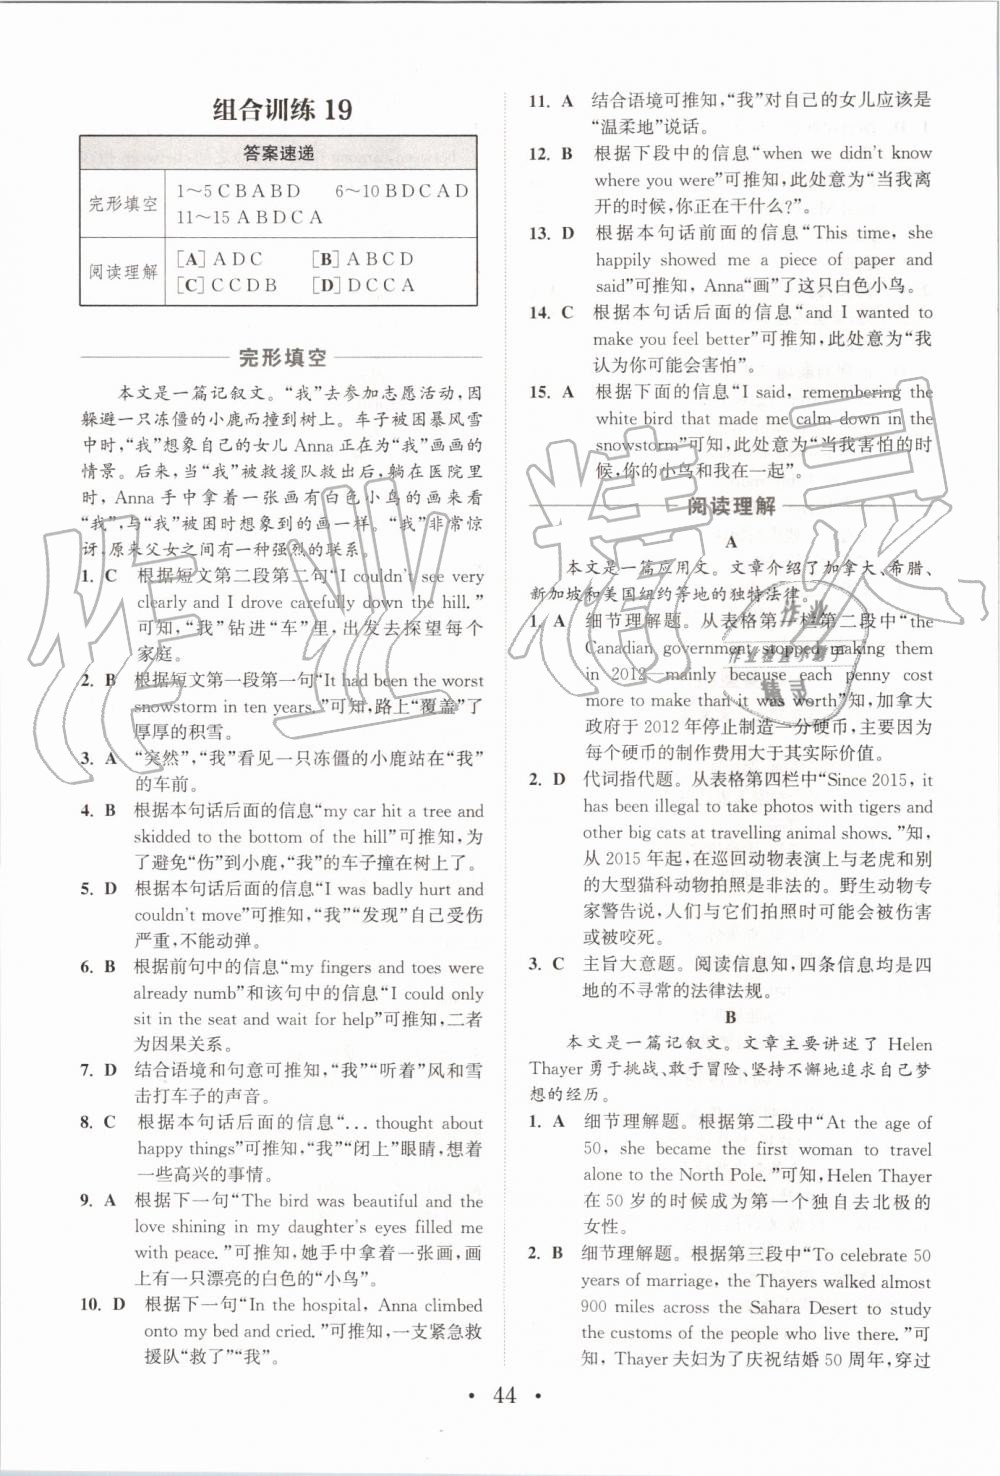 组合训练 19
答案速递
完形填空
1～5 C B A B D 6～10 B D C A D
11～15 A B D C A
阅读理解
[A] A D C [B] A B C D
[C] C C D B [D] D C C A
完形填空
本文是一篇记叙文。“我”去参加志愿活动,因
躲避一只冻僵的小鹿而撞到树上。车子被困暴风雪
中时,“我”想象自己的女儿 Anna 正在为“我”画画的
情景。后来,当“我”被救援队救出后,躺在医院里
时,Anna 手中拿着一张画有白色小鸟的画来看
“我”,与“我”被困时想象到的画一样。“我”非常惊
讶,原来父女之间有一种强烈的联系。
1. C 根据短文第二段第二句“I couldn't see very
clearly and I drove carefully down the hill.”
可知,“我”钻进“车”里,出发去探望每个
家庭。
2. B 根据短文第一段第一句“It had been the worst
snowstorm in ten years.”可知,路上“覆盖”了
厚厚的积雪。
3. A “突然”,“我”看见一只冻僵的小鹿站在“我”
的车前。
4. B 根据本句话后面的信息“my car hit a tree and
skidded to the bottom of the hill”可推知,为
了避免“伤”到小鹿,“我”的车子撞在树上了。
5. D 根据本句话后面的信息“I was badly hurt and
couldn't move”可推知,“我”“发现”自己受伤
严重,不能动弹。
6. B 根据前句中的信息“my fingers and toes were
already numb”和该句中的信息“I could only
sit in the seat and wait for help”可推知,二者
为因果关系。
7. D 结合语境和句意可推知,“我”“听着”风和雪
击打车子的声音。
8. C 根据本句话后面的信息“... thought about
happy things”可推知,“我”“闭上”眼睛,想着
一些高兴的事情。
9. A 根据下一句“The bird was beautiful and the
love shining in my daughter's eyes filled me
with peace.”可推知,她手中拿着一张画,画
上有一只漂亮的白色的“小鸟”。
10. D 根据下一句“In the hospital, Anna climbed
onto my bed and cried.”可推知,一支紧急救
援队“救了”“我”。
11. A 结合语境可推知,“我”对自己的女儿应该是
“温柔地”说话。
12. B 根据下段中的信息“when we didn't know
where you were”可推知,此处意为“当我离
开的时候,你正在干什么?”。
13. D 根据本句话前面的信息“This time, she
happily showed me a piece of paper and
said”可推知,Anna“画”了这只白色小鸟。
14. C 根据本句话后面的信息“and I wanted to
make you feel better”可推知,此处意为“我
认为你可能会害怕”。
15. A 根据下面的信息“I said, remembering the
white bird that made me calm down in the
snowstorm”可知,此处意为“当我害怕的时
候,你的小鸟和我在一起”。
阅读理解
A
本文是一篇应用文。文章介绍了加拿大、希腊、
新加坡和美国纽约等地的独特法律。
1. A 细节理解题。从表格第一栏第二段中“the
Canadian government stopped making them
in 2012—mainly because each penny cost
more to make than it was worth”知,加拿大
政府于 2012 年停止制造一分硬币,主要因为
每个硬币的制作费用大于其实际价值。
2. D 代词指代题。从表格第四栏中“Since 2015, it
has been illegal to take photos with tigers and
other big cats at travelling animal shows.”知,
从 2015 年起,在巡回动物表演上与老虎和别
的大型猫科动物拍照是非法的。野生动物专
家警告说,人们与它们拍照时可能会被伤害
或被咬死。
3. C 主旨大意题。阅读信息知,四条信息均是四
地的不寻常的法律法规。
B
本文是一篇记叙文。文章主要讲述了 Helen
Thayer 勇于挑战、敢于冒险、坚持不懈地追求自己梦
想的经历。
1. A 细节理解题。根据第二段中“At the age of
50, she became the first woman to travel
alone to the North Pole.”可知,Helen Thayer
在 50 岁的时候成为第一个独自去北极的
女性。
2. B 细节理解题。根据第三段中“To celebrate 50
years of marriage, the Thayers walked almost
900 miles across the Sahara Desert to study
the customs of the people who live there.”可
知,Thayer 夫妇为了庆祝结婚 50 周年,穿过
• 44 •
作业精灵